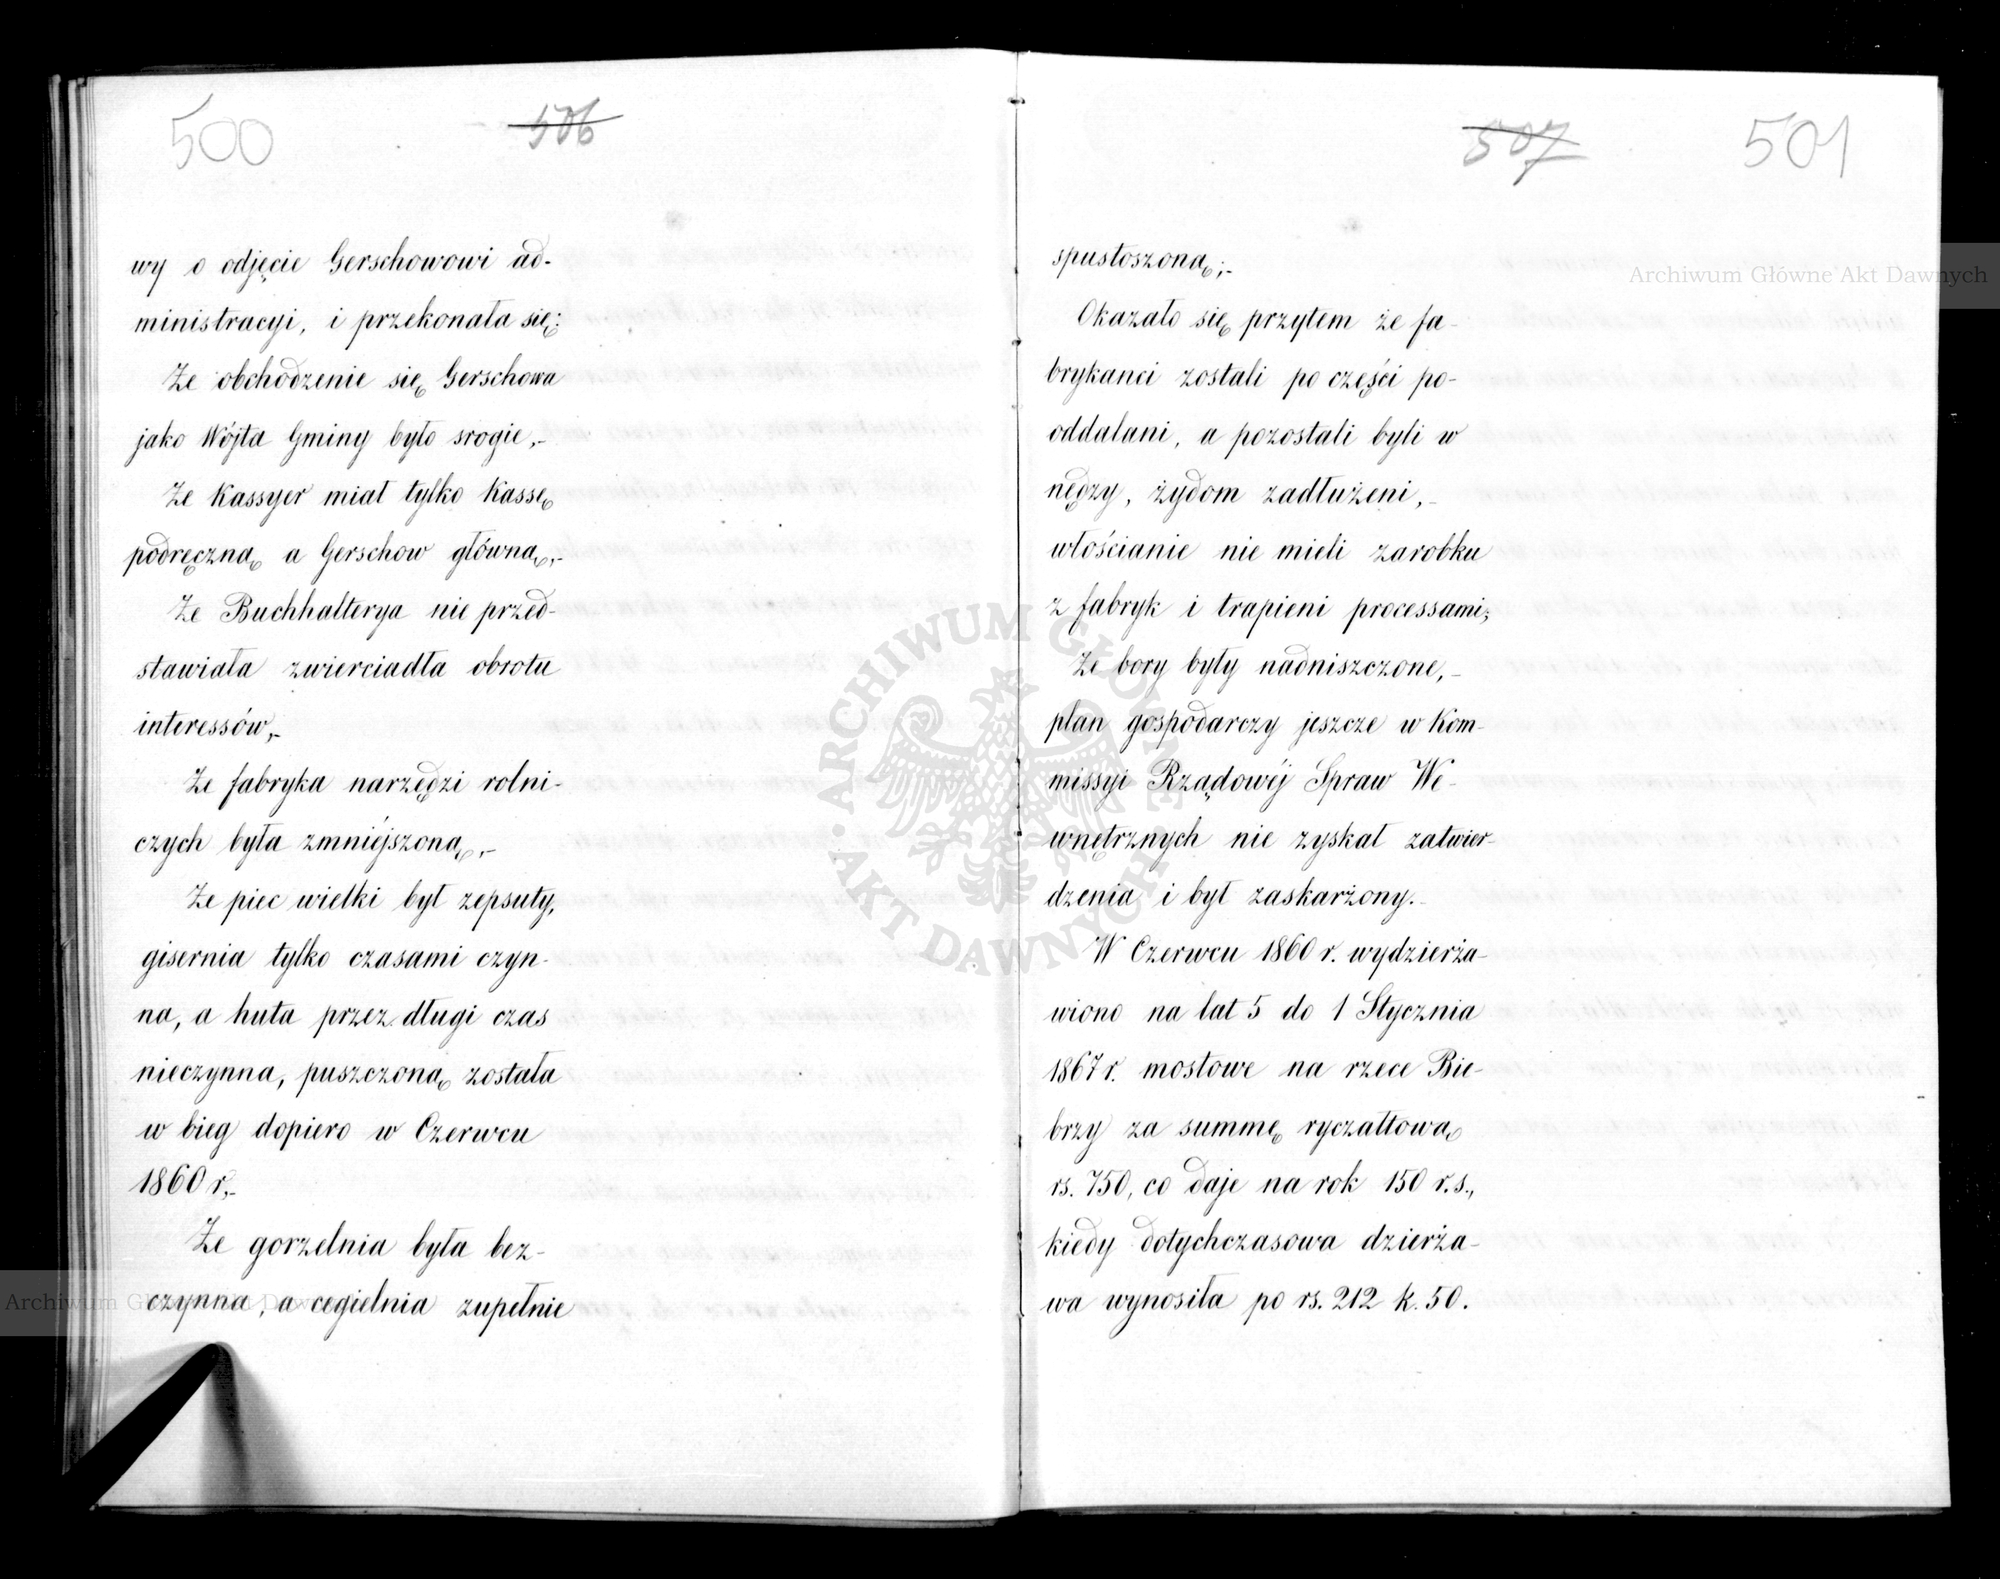 500
506
wy o odjęcie Gerschowowi ad-
ministracyi, i przekonała się:
Że obchodzenie się Gerschowa
jako Wójta Gminy było srogie,-
Że Kassyer miał tylko Kassę
podręczną a Gerschow główną,-
Że Buchhalterya nie przed-
stawiała zwierciadła obrotu
interessów,-
Że fabryka narzędzi rolni-
czych była zmniéjszoną,-
Że piec wielki był zepsuty,
gisernia tylko czasami czyn-
na, a huta przez długi czas
nieczynna, puszczoną została
w bieg dopiero w Czerwcu
1860 r,-
Że gorzelnia była bez-
czynna, a cegielnia zupełnie
507
501
spustoszoną;-
Okazało się przytem że fa-
brykanci zostali po części po-
oddalani, a pozostali byli w
nędzy, żydom zadłużeni,-
włościanie nie mieli zarobku
z fabryk i trapieni processami;
Że bory były nadniszczone,-
plan gospodarczy jeszcze w Kom-
missyi Rządowéj Spraw We-
wnętrznych nie zyskał zatwier-
dzenia i był zaskarżony.-
W Czerwcu 1860 r. wydzierża-
wiono na lat 5 do 1 Stycznia
1867 r. mostowe na rzece Bie-
brzy za summę ryczałtową
rs. 750, co daje na rok 150 r.s.,
kiedy dotychczasowa dzierża-
wa wynosiła po rs. 212 k. 50.
Archiwum Główne Akt Dawnych
ARCHIWUM GŁÓWNE AKT DAWNYCH
Archiwum Główne Akt Dawnych